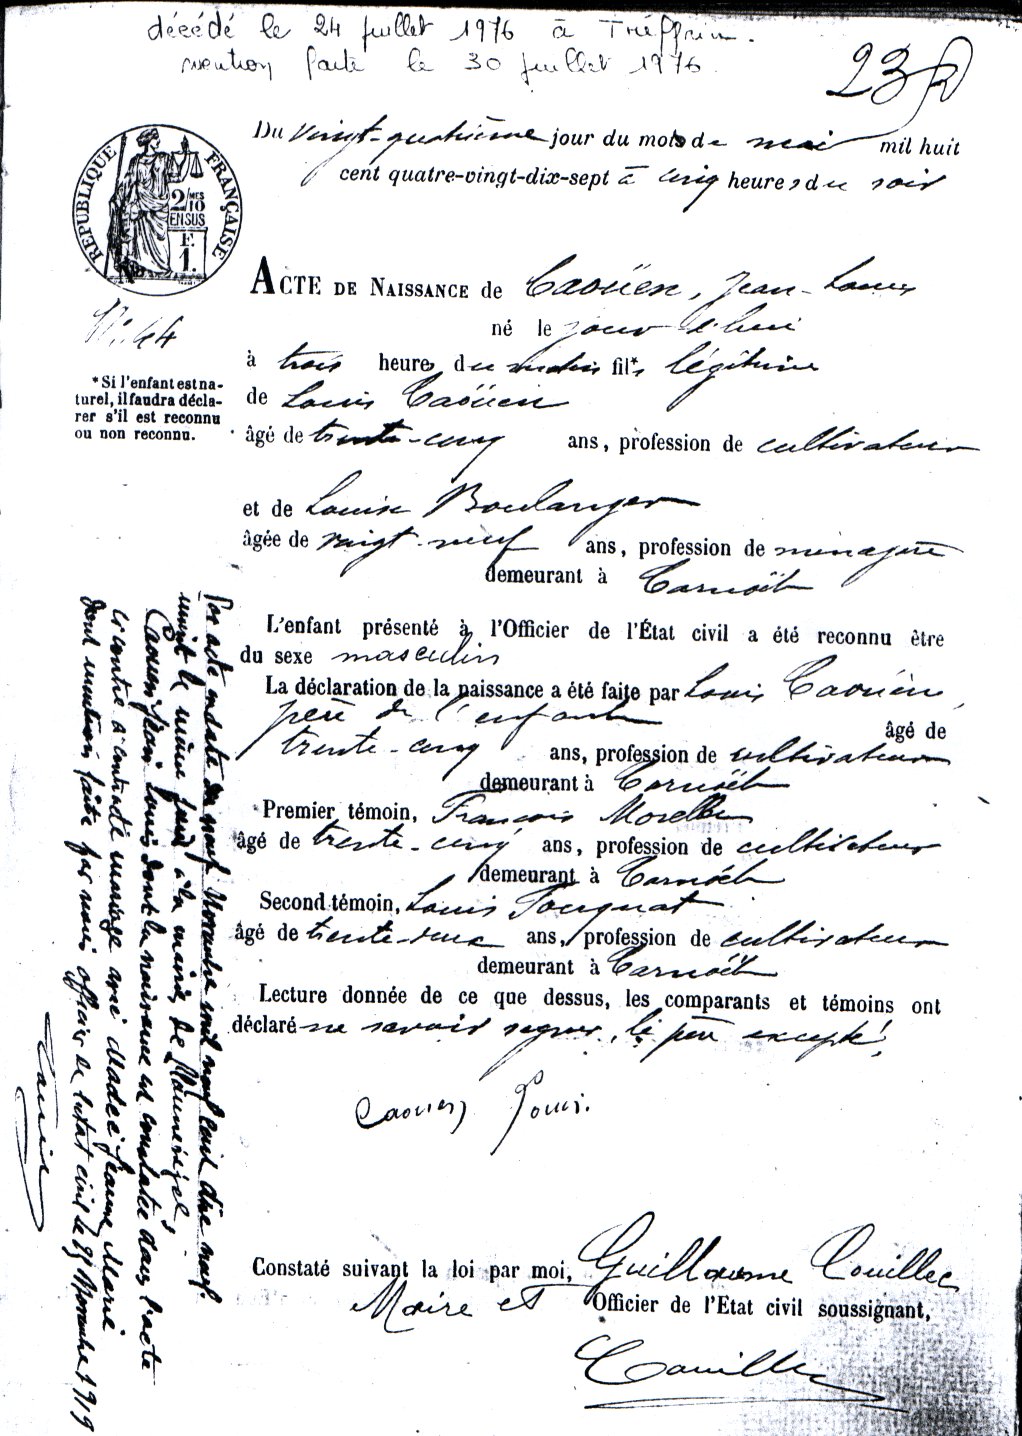 décédé le 24 juillet 1976 à Tréffrin.
mention faite le 30 juillet 1976.
23
RÉPUBLIQUE FRANÇAISE
2/10 MES
EN SUS
F.
1.
Du vingt-quatrième jour du mois de mai mil huit
cent quatre-vingt-dix-sept à cinq heures du soir
ACTE DE NAISSANCE de Caoüen, Jean-Louis
né le jour d'hui
N: 44
à trois heures du matin fils* légitime
*Si l'enfant est na-
turel, il faudra décla-
rer s'il est reconnu
ou non reconnu.
de Louis Caoüen
âgé de trente-cinq ans, profession de cultivateur
et de Louise Boulanger
âgée de vingt-neuf ans, profession de ménagère
demeurant à Carnoët
L'enfant présenté à l'Officier de l'État civil a été reconnu être
du sexe masculin
La déclaration de la naissance a été faite par Louis Caoüen,
père de l'enfant âgé de
trente-cinq ans, profession de cultivateur
demeurant à Carnoët
Premier témoin, François Morellec
âgé de trente-cinq ans, profession de cultivateur
demeurant à Carnoët
Second témoin, Louis
âgé de trente-deux ans, profession de cultivateur
demeurant à Carnoët
Lecture donnée de ce que dessus, les comparants et témoins ont
déclaré ne savoir signer, le père excepté,
Caouen Louis.
Constaté suivant la loi par moi, Guillaume Couillec
Maire et Officier de l'Etat civil soussignant,
Couillec
Par acte en date du neuf Novembre mil neuf cent dix neuf.
inscrit le même jour à la mairie de Plounévézel,
Caouen Jean Louis dont la naissance est constatée dans l'acte
ci contre a contracté mariage avec Jeanne Marie
dont mention faite par nous officier de l'état civil le 25 Novembre 1919